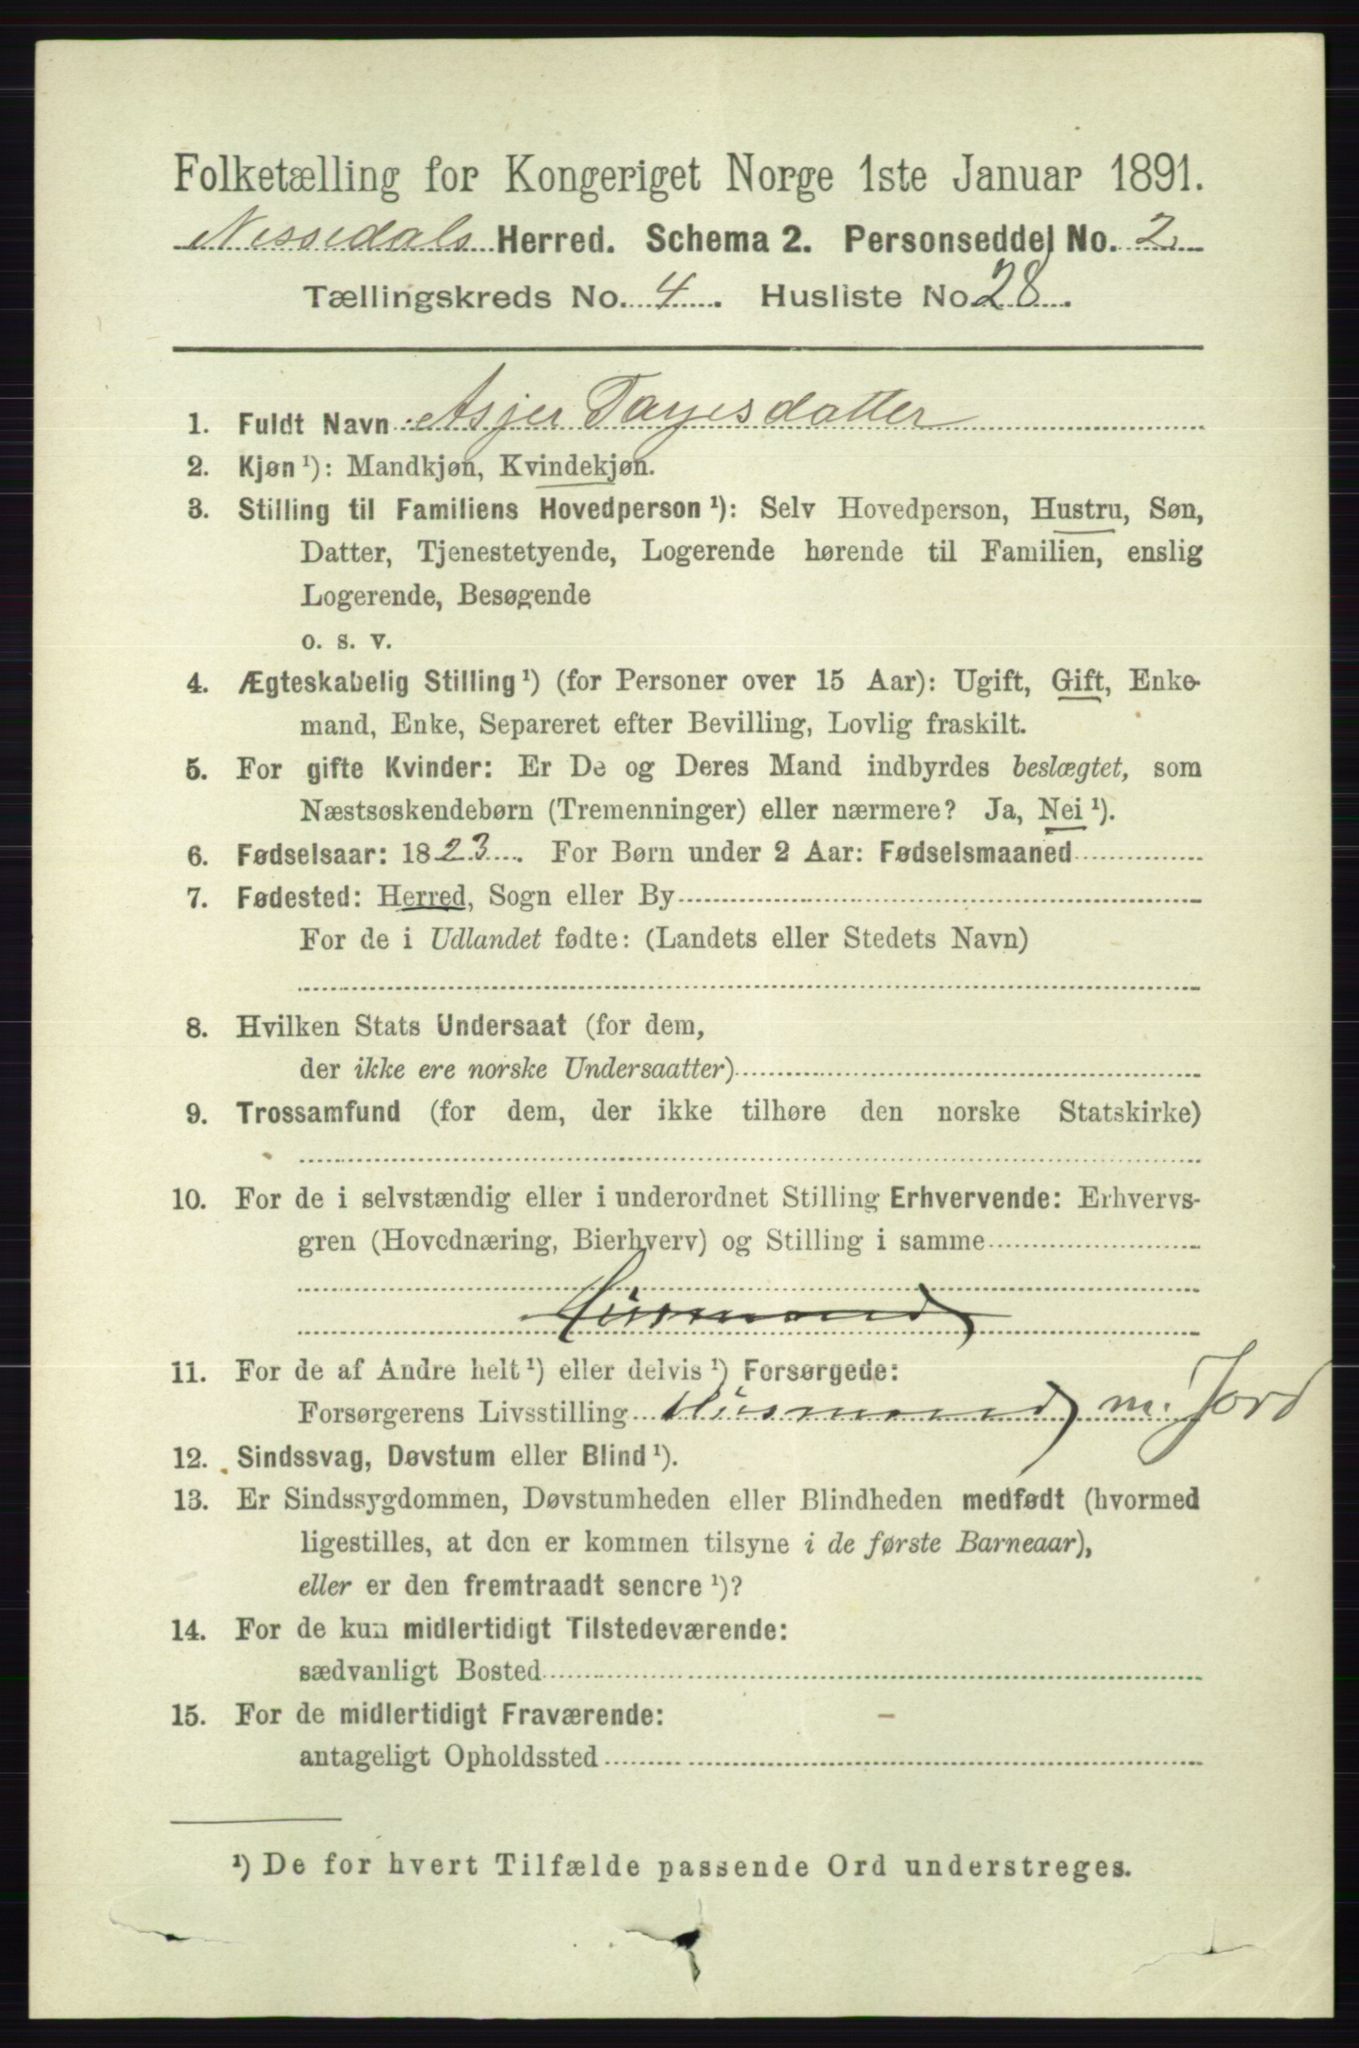 Folketælling for Kongeriget Norge 1ste Januar 1891.
Nissedals Herred. Schema 2. Personseddel No. 2.
Tællingskreds No. 4. Husliste No. 28.
1. Fuldt Navn Asjer Tarjesdatter
2. Kjøn ¹): Mandkjøn, Kvindekjøn.
3. Stilling til Familiens Hovedperson ¹): Selv Hovedperson, Hustru, Søn,
Datter, Tjenestetyende, Logerende hørende til Familien, enslig
Logerende, Besøgende
o. s. v.
4. Ægteskabelig Stilling ¹) (for Personer over 15 Aar): Ugift, Gift, Enke-
mand, Enke, Separeret efter Bevilling, Lovlig fraskilt.
5. For gifte Kvinder: Er De og Deres Mand indbyrdes beslægtet, som
Næstsøskendebørn (Tremenninger) eller nærmere? Ja, Nei ¹).
6. Fødselsaar: 1823. For Børn under 2 Aar: Fødselsmaaned
7. Fødested: Herred, Sogn eller By
For de i Udlandet fødte: (Landets eller Stedets Navn)
8. Hvilken Stats Undersaat (for dem,
der ikke ere norske Undersaatter)
9. Trossamfund (for dem, der ikke tilhøre den norske Statskirke)
10. For de i selvstændig eller i underordnet Stilling Erhvervende: Erhvervs-
gren (Hovednæring, Bierhverv) og Stilling i samme
Husmand
11. For de af Andre helt ¹) eller delvis ¹) Forsørgede:
Forsørgerens Livsstilling Husmand m. Jord
12. Sindssvag, Døvstum eller Blind ¹).
13. Er Sindssygdommen, Døvstumheden eller Blindheden medfødt (hvormed
ligestilles, at den er kommen tilsyne i de første Barneaar),
eller er den fremtraadt senere ¹)?
14. For de kun midlertidigt Tilstedeværende:
sædvanligt Bosted
15. For de midlertidigt Fraværende:
antageligt Opholdssted
¹) De for hvert Tilfælde passende Ord understreges.